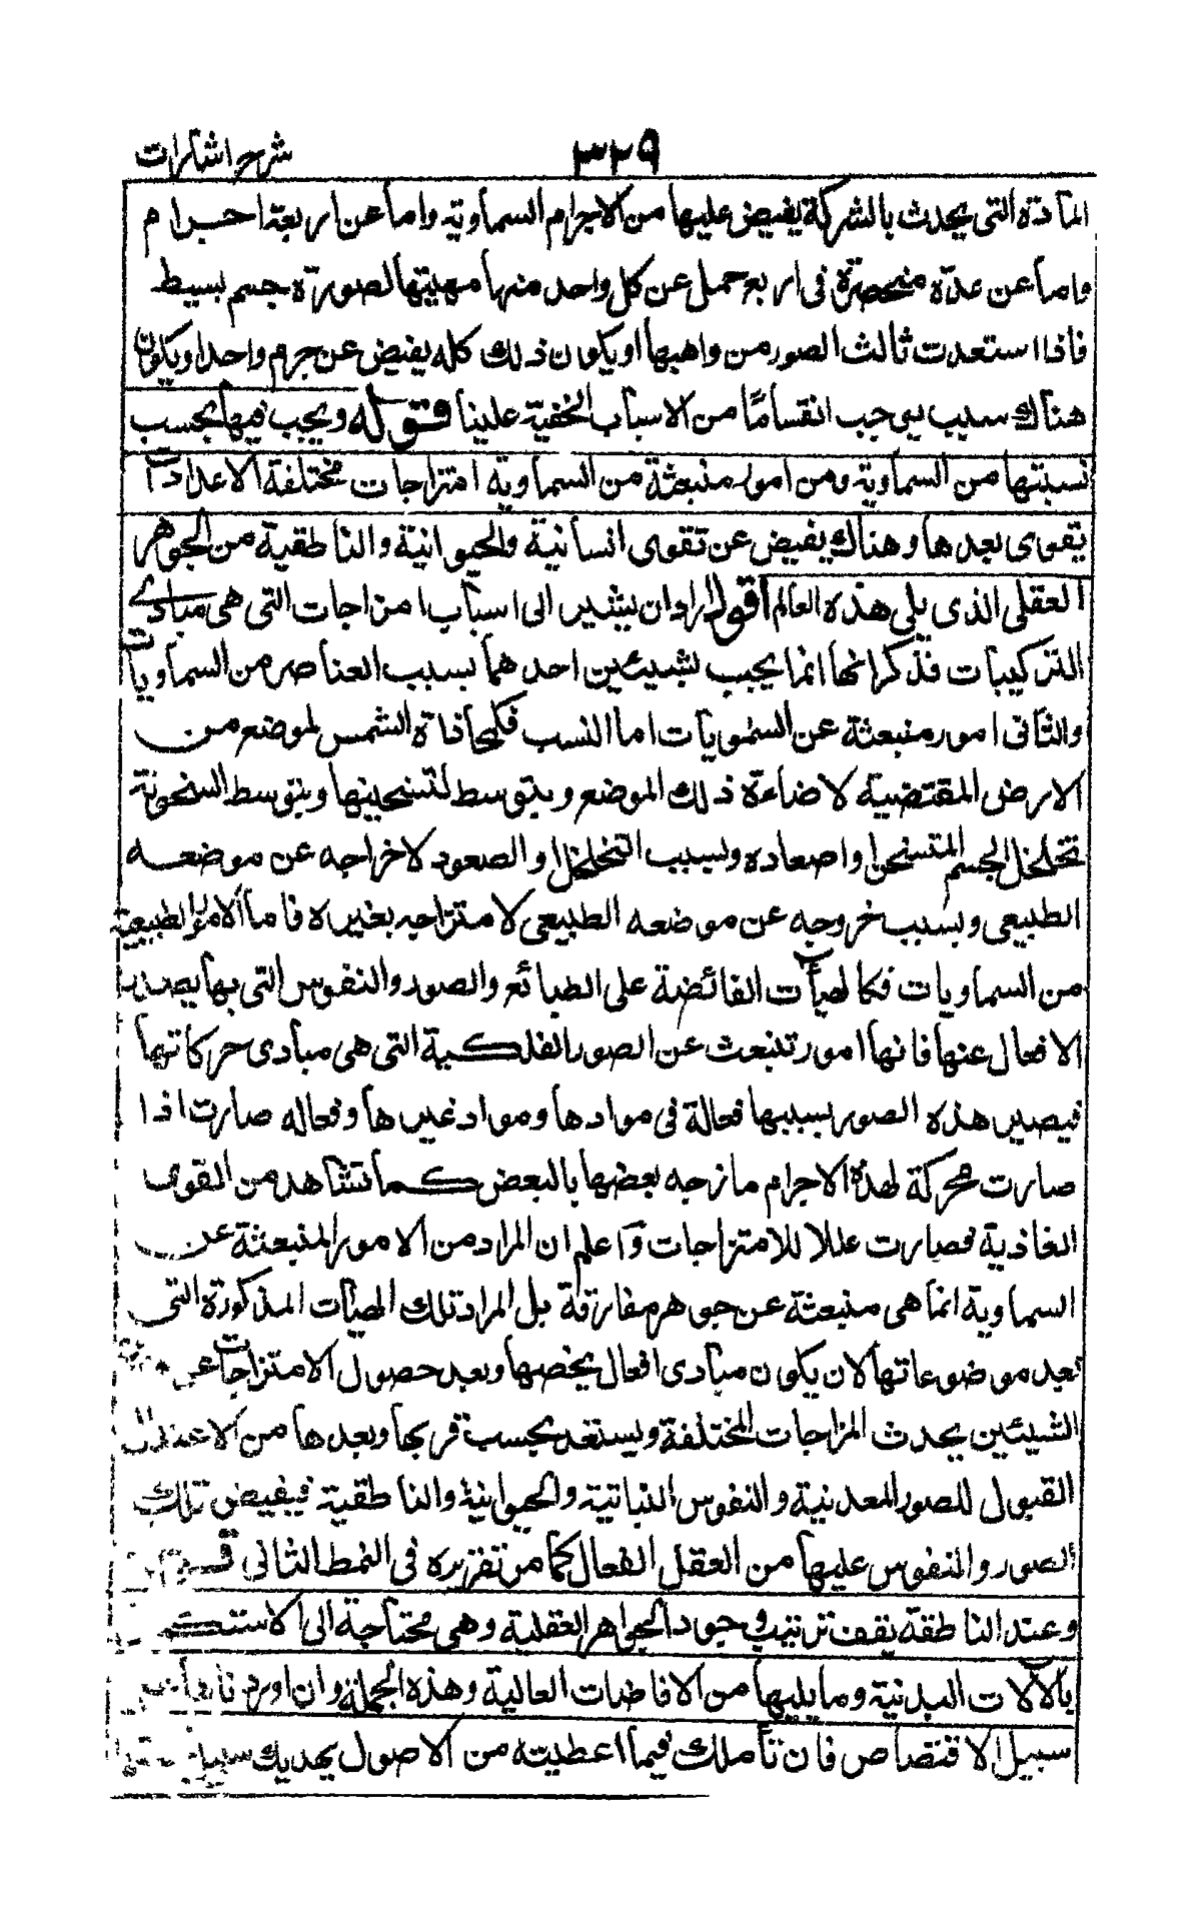 شرح اشارات
٣٢٩
المادة التى يحدث بالشركة يفيض عليها من الاجرام السماوية واما عن اربعة اجرام
واما عن عدة منحصرة فى اربع جمل عن كل واحد منها مهيتها لصورة جسم بسيط
فاذا استعدت ثالث الصور من واهبها او يكون ذلك كله يفيض عن جرم واحد او يكون
هناك سبب يوجب انقساما من الاسباب الخفية علينا قوله ويجب فيها بحسب
نسبتها من السماوية ومن امور منبعثة من السماوية امتزاجات مختلفة الاعدادات
يقوى بعدها وهناك يفيض عن تقوى انسانية والحيوانية والناطقية من الجوهر
العقلى الذى يلى هذه العالم اقول اراد ان يشير الى اسباب امزاجات التى هى مبادى
التركيبات فذكر انها انما يجب بشيئين احدهما بسبب العناصر من السماويات
والثانى امور منبعثة عن السمويات اما النسب فكمحاذاة الشمس لموضع من
الارض المقتضية لاضاءة ذلك الموضع ويتوسط لتسخينها وبتوسط السخونة
تخلخل الجسم المتسخن واصعاده وبسبب التخلخل او الصعود لاخراجه عن موضعه
الطبيعى وبسبب خروجه عن موضعه الطبيعى لامتزاجه بغيره فاما الامور الطبيعية
من السماويات فكالهيآت الفائضة على الطبائع والصور والنفوس التى بها يصدر
الافعال عنها فانها امور تنبعث عن الصور الفلكية التى هى مبادى حركاتها
فيصير هذه الصور بسببها فعالة فى موادها ومواد غيرها وفعاله صارت اذا
صارت محركة لهذه الاجرام مازجه بعضها بالبعض كما تشاهد من القوى
الغاذية فصارت عللا للامتزاجات وآعلم ان المراد من الامور المنبعثة عن
السماوية انما هى منبعثة عن جوهر مفارقة بل المراد تلك الهيآت المذكورة التى
تعد موضوعاتها لان يكون مبادى افعال يخصها وبعد حصول الامتزاجات عن
الشيئين يحدث المزاجات المختلفة ويستعد بحسب قربها وبعدها من الاعتدال
القبول للصور المعدنية والنفوس النباتية والحيوانية والناطقية فيفيض تلك
الصور والنفوس عليها من العقل الفعال كما مر تقريره فى النمط الثانى
وعند الناطقة يقف ترتيب وجود الجواهر العقلية وهى محتاجة الى الاستكم
بالآلات البدنية وما يليها من الافاضات العالية وهذه الجملة وان اورد
سبيل الاقتصاص فان تأملك فيما اعطيته من الاصول يهديك سبيل